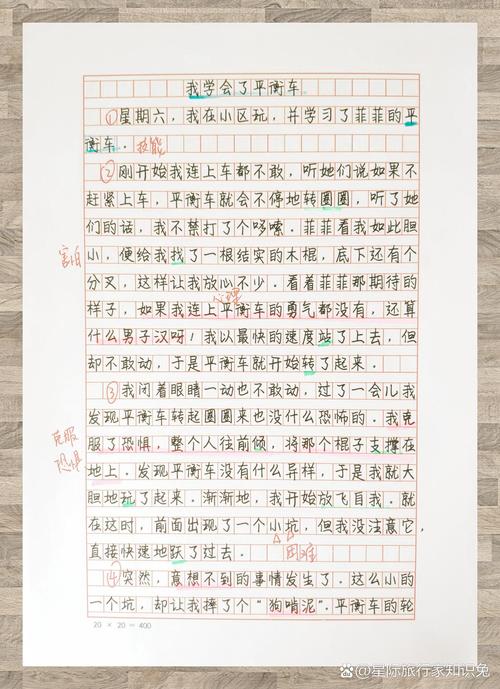 我学会了平衡车
①星期六，我在小区玩，并学习了菲菲的平
衡车．技能
②刚开始我连上车都不敢，听她们说如果不
赶紧上车，平衡车就会不停地转圈圈，听了她
们的话，我不禁打了个哆嗦．菲菲看我如此胆
害怕
小，便给我找了一根结实的木棍，底下还有个
分叉，这样让我放心不少．看着菲菲那期待的
心理
样子，如果我连上平衡车的勇气都没有，还算
什么男子汉呀！我以最快的速度站了上去，但
却不敢动，于是平衡车就开始转了起来．
③我闭着眼睛一动也不敢动，过了一会儿我
发现平衡车转起圆圈来也没什么恐怖的．我克
克服
恐惧
服了恐惧，整个人往前倾，将那个棍子支撑在
地上．发现平衡车没有什么异样，于是我就大
胆地玩了起来．渐渐地，我开始放飞自我．就
在这时，前面出现了一个小坑，但我没注意它，
直接快速地跃了过去．困难
④突然，意想不到的事情发生了．这么小的
一个坑，却让我摔了个“狗啃泥”．平衡车的轮
20 × 20 = 400
星际旅行家知识兔